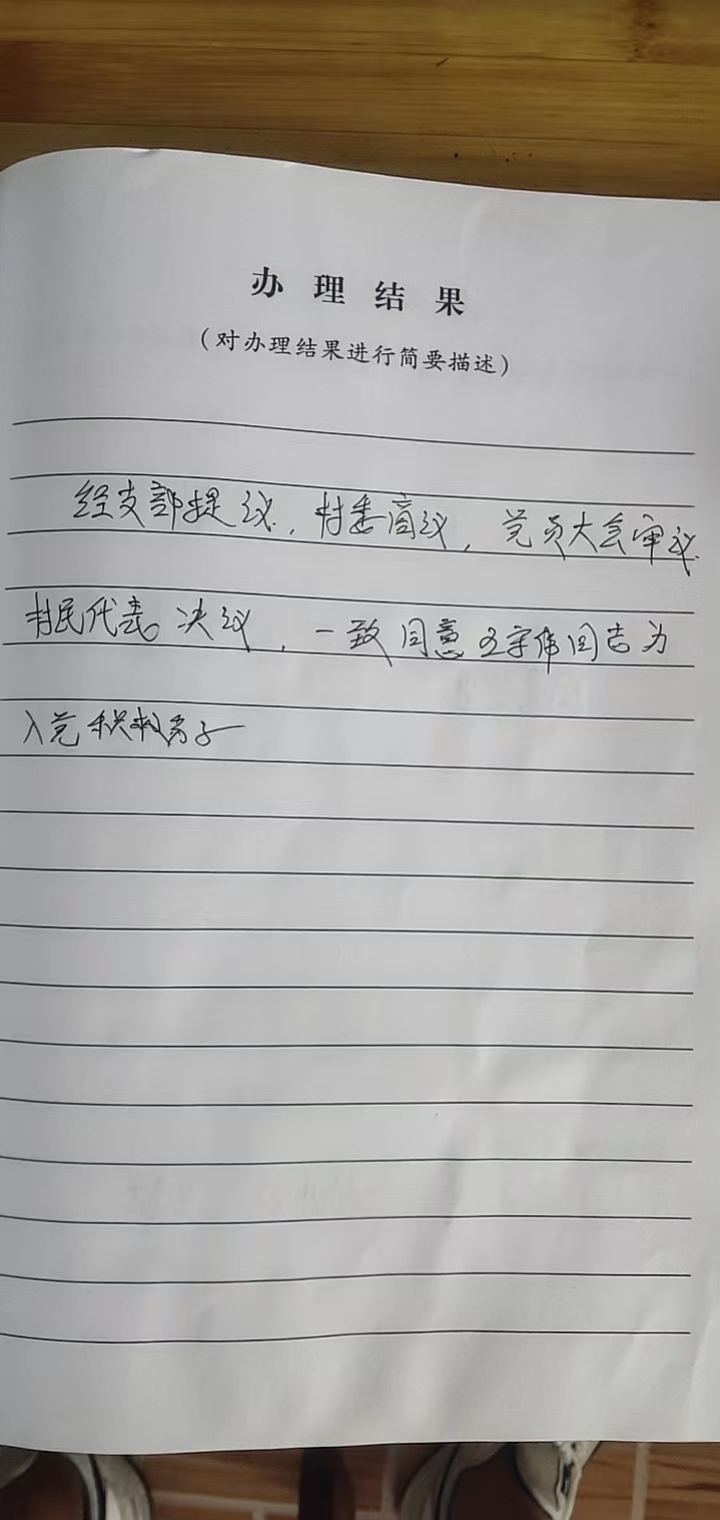 办理结果
（对办理结果进行简要描述）
经支部提议，村委商议，党员大会审议
村民代表决议，一致同意王宇伟同志为
入党积极分子